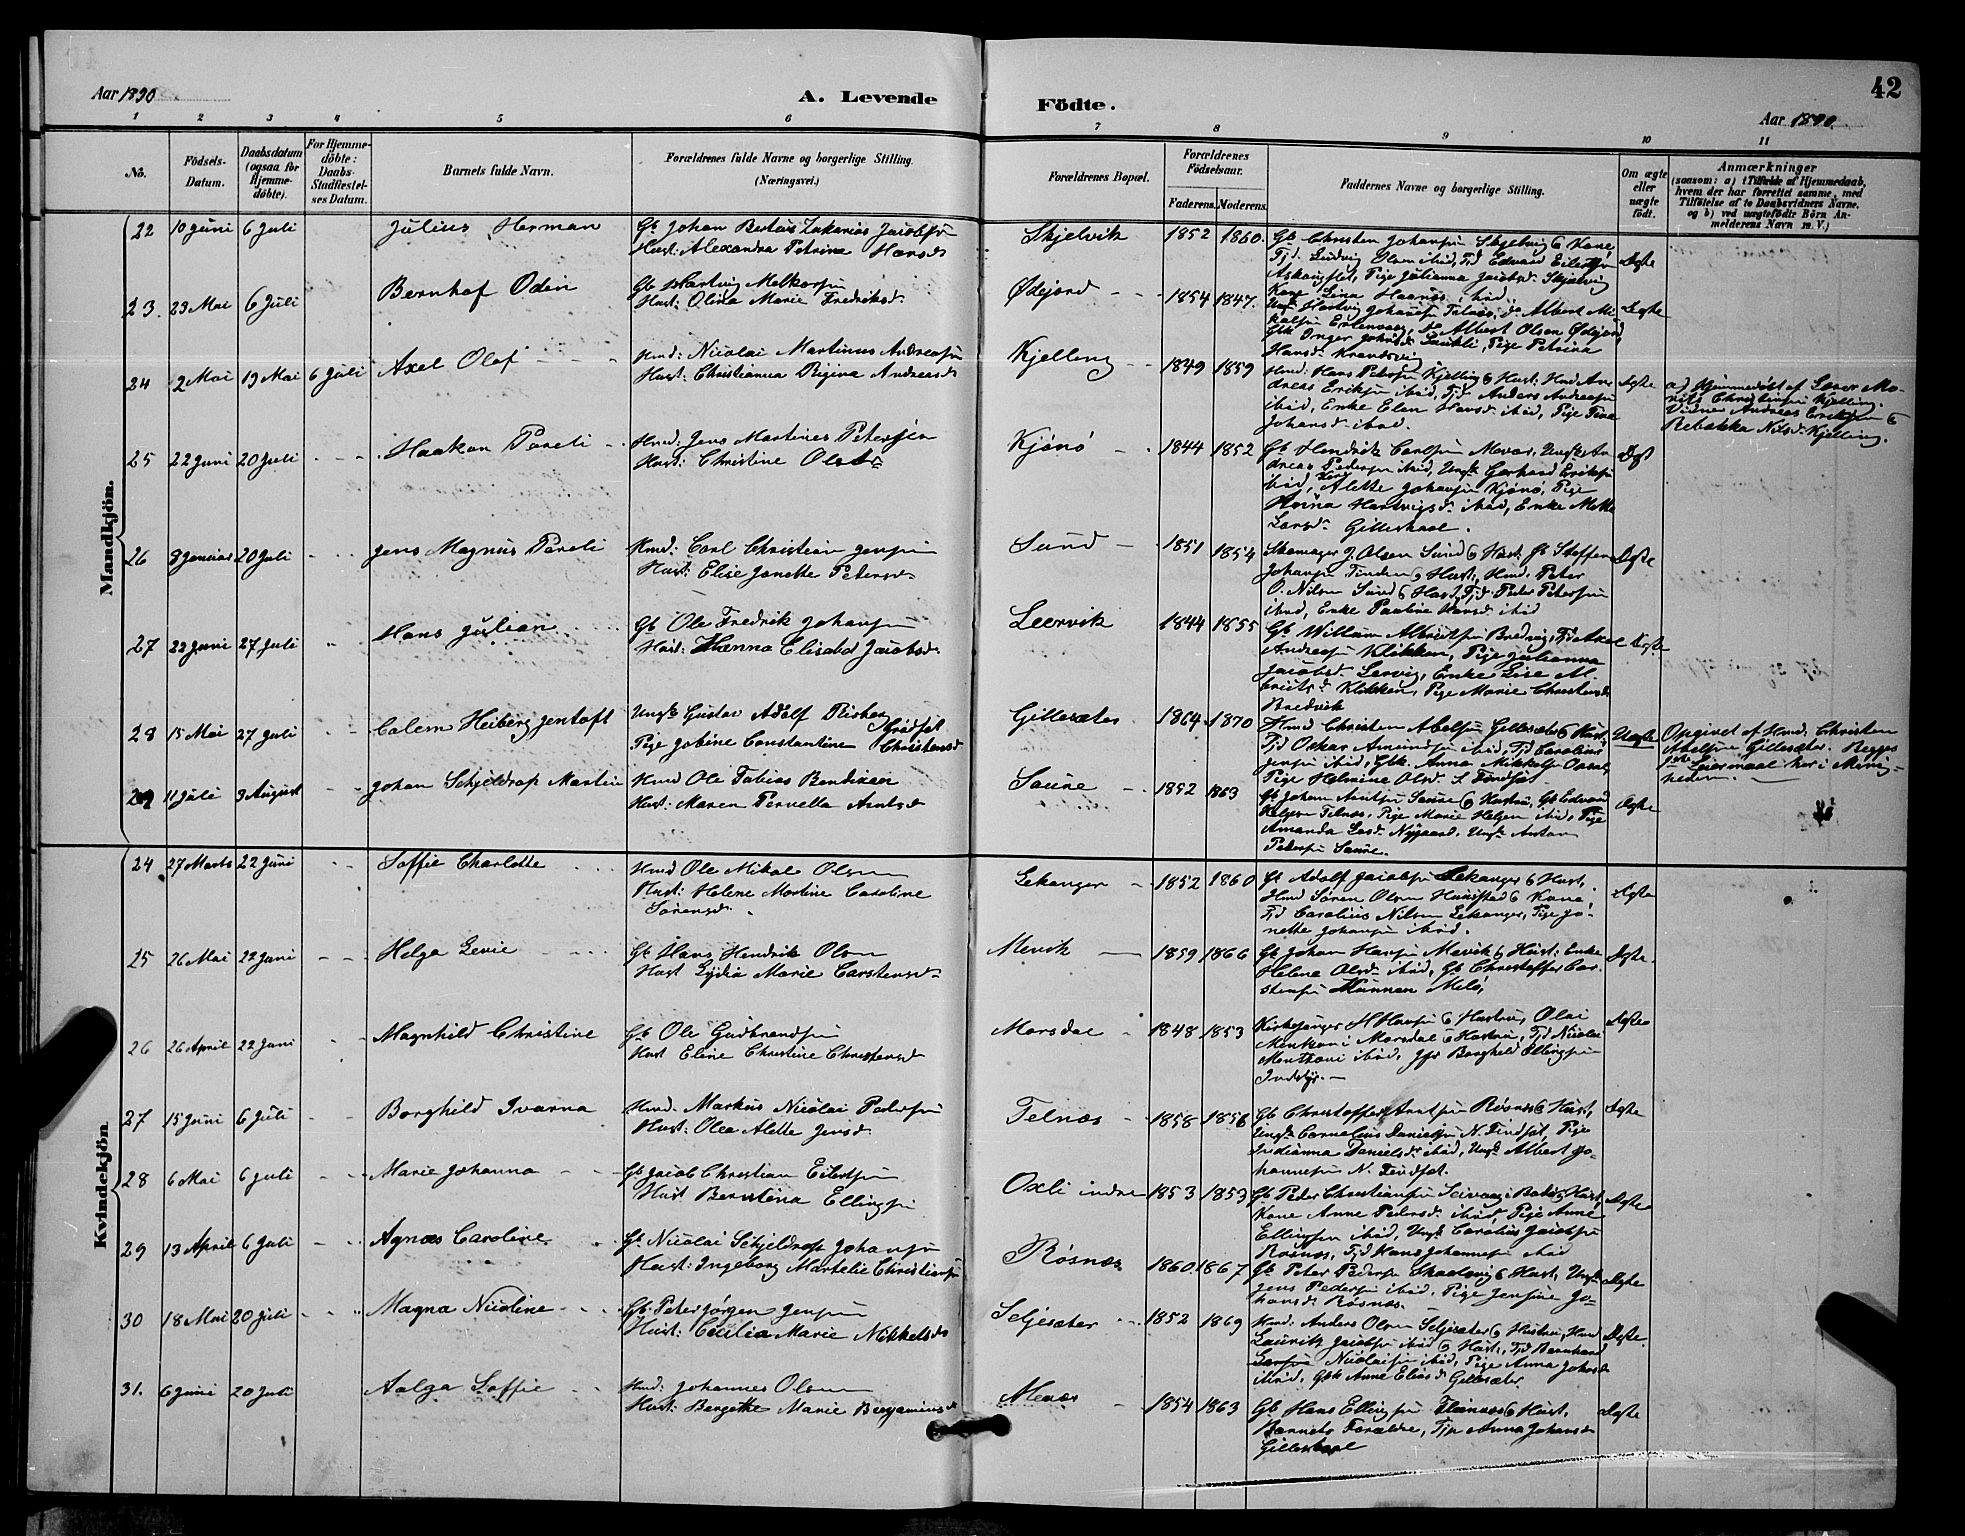 Aar 1890
A. Levende
Födte.
Aar 1890.
42
1 2 3 4 5 6 7 8 9 10 11
No.
Födsels-
Datum.
Daabsdatum
(ogsaa for
Hjemme-
döbte).
For Hjemme-
döbte:
Daabs-
Stadfæstel-
ses Datum.
Barnets fulde Navn.
Forældrenes fulde Navne og borgerlige Stilling.
(Næringsvei.)
Forældrenes Bopæl.
Forældrenes
Födselsaar.
Faderens. Moderens.
Faddernes Navne og borgerlige Stilling.
Om ægte
eller
uægte
födt.
Anmærkninger
(saasom: a) i Tilfælde af Hjemmedaab,
hvem der har forrettet samme, med
Tilföielse af to Daabsvidners Navne,
og b) ved uægtefödte Börn An-
melderens Navn m. V.)
Mandkjön.
22 10 Juni 6 Juli
Julius Herman
Gb Johan Bertius Zakarias Jacobsen
Hust: Alexandra Petrina Hansd
Skjelvik 1852 1860.
Ægte
23. 23 Mai 6 Juli
Bernhof Odin
Gb Hartvig Melkorsen
Hust: Olina Marie Fredriksd
Ødejord 1854 1847.
Ægte
24 2 Mai 19 Mai 6 Juli
Axel Olaf
Hmd: Nicolai Martinus Andreasen
Hust: Christianna Regine Andreasd
Kjelling 1849 1859
Hmd: Hans Petersen Kjelling & Hust: Hmd An-
dreas Eriksen ibid, Tjd Anders Andreasen
ibid, Enke Elen Hansd ibid, Pige Tina
Johansd ibid.
Ægte
a) Hjemmedöbt af Lærer Mo-
ritz Christensen Kjelling.
Vidner Andreas Eriksen &
Rebekka Nilsd Kjelling.
25 22 Juni 20 Juli
Haakon Pareli
Hmd: Jens Martines Petersen
Hust: Christine Olsd
Kjönö 1844 1852
Gb Hendrik Carlsen Mevær, Ungk An-
dreas Pedersen ibid, Ungk Gerhard Eriksen
ibid, Alette Johansen Kjönö, Pige
Hartvigsd ibid, Enke Mette
Larsd Gilleskaal.
Ægt
26 8 Januar 20 Juli
Jens Magnus Pareli
Hmd: Carl Christian Jensen
Hust: Elise Janette Petersd
Sund 1851 1854
J. Olsen Sund & Hust, Gb Steffen
Johansen Finden & Hust, Hmd. Peter
O. Nilsen Sund & Hust, Tjd Peder Petersen
ibid, Enke Pauline Hansd ibid
Ægte
27 22 Juni 27 Juli
Hans Julian
Gb Ole Fredrik Johansen
Hust: Hanna Elisabet Jacobsd
Leervik 1844 1855
Gb Willum Albrigtsen Bredvig, Tj Axel
Andreasen Klikken, Pige Julianna
Jacobsd Lervig, Enke Lise Al-
brigtsd Klikken, Pige Marie Christensd
Bredvik
Ægte
28 15 Mai 27 Juli
Calem Heiberg Jentoft
Ungk Gustav Adolf
Pige Jobine Constantine Christensd
Gillesæter 1864 1870
Hmd Christen Abelsen Gillesæter & Hust,
Tjd Oskar Amundsen ibid, Tjd Carolius
Jensen ibid, Gbk. Anna Mikkelsen
Pige Helmine Olsd S. Findsæt
Uægte
Opgivet af Hmd. Christen
Abelsen Gillesæter. Begges
1ste Leiermaal her i Menig-
heden.
29 11 Juli 3 August
Johan Schjeldrap Martin
Hmd Ole Tobias Bendixen
Hust: Maren Pernella Arntsd
Saure 1852 1863
Gb Johan Arntsen Saure & Hustru, Gb Edvard
Helgesen Telnæs, Pige Marie Helgesen ibid, Pige
Amanda Larsd Nygaard, Ungk Anton
Pedersen Saure.
Ægte
Kvindekjön.
24 27 Marts 22 Juni
Soffie Charlotte
Hmd Ole Mikal Olsen
Hust: Helene Martine Caroline
Sörensd
Lekanger 1852 1860
Gb Adolf Jacobsen Lekanger & Hust,
Hmd Sören Olsen Hunstad & Kone,
Tjd Carolius Nilsen Lekanger, Pige Ja-
nette Johansen ibid.
Ægte
25 26 Mai 22 Juni
Helga Levie
Gb Hans Hendrik Olsen
Hust Lydia Marie Carstensd
Mevik 1859 1866
Gb Johan Hansen Mevik & Hust: Enke
Helene Olsd ibid, Gb Christoffer Car-
stensen Melö,
Ægte.
26 26 April 22 Juni
Magnhild Christine
Gb Ole Gudbrandsen
Hust Eline Christine Christensd
Morsdal 1848 1853
Kirkesanger H Hansen & Hustru, Olai
Mentzoni Morsdal & Hustru, Tjd Nicolai
Mentzoni ibid, Jfr Borghild Ellingsen
Indstyr.
Ægte
27 15 Juni 6 Juli
Borghild Ivarna
Hmd. Markus Nicolai Pedersen
Hust: Olea Alette Jensd
Telnæs 1858 1856
Gb Christoffer Arntsen Rösnæs & Hust,
Ungk Cornelius Danielsen N. Findsæt Pige
Indianna Danielsd ibid, Ungk Albert Jo-
hannesen N. Findsæt.
Ægte
28 6 Mai 6 Juli
Marie Johanna
Gb Jacob Christian Eilertsen
Hust Berntina Ellingsen
Oxli indre 1853 1853
Gb Peder Christiansen Seivaag i Bodö & Hust,
Kone Anne Pedersd ibid, Pige Anne
Ellingsen ibid, Ungk Carolius Jacobsen
Rösnæs, Tjd Hans Johannesen ibid
Ægte
29 13 April 6 Juli
Agnæs Caroline
Gb Nicolai Schjeldrap Johansen
Hust: Ingeborg Martelie Christiansen
Røsnæs 1860 1867
Gb Peter Pedersen Skaalsvig & Hust, Ungk
Jens Pedersen ibid, Pige Jensine Jo-
hansd Rösnæs.
Ægte
30 18 Mai 20 Juli
Magna Nicoline
Gb. Peter Jörgen Jensen
Hust: Cecilia Marie Nikkelsd
Seljesæter 1852 1869
Hmd. Anders Olsen Seljesæter & Hustru, Hmd
Lauritz Jacobsen ibid & Hust, Tjd Bernhard
Nicolaisen ibid, Pige Anna Johansd
ibid, Gbk Anne Eliasd Gillesæter.
Ægte.
31. 6 Juni 20 Juli
Aalga Soffie
Hmd: Johannes Olsen
Hust: Bergethe Marie Benjaminsd
Mevær 1854 1863
Gb Hans Ellingsen & Hust,
Barnets Forældre, Tjp Anna Johansd
Gilleskaal
Ægte